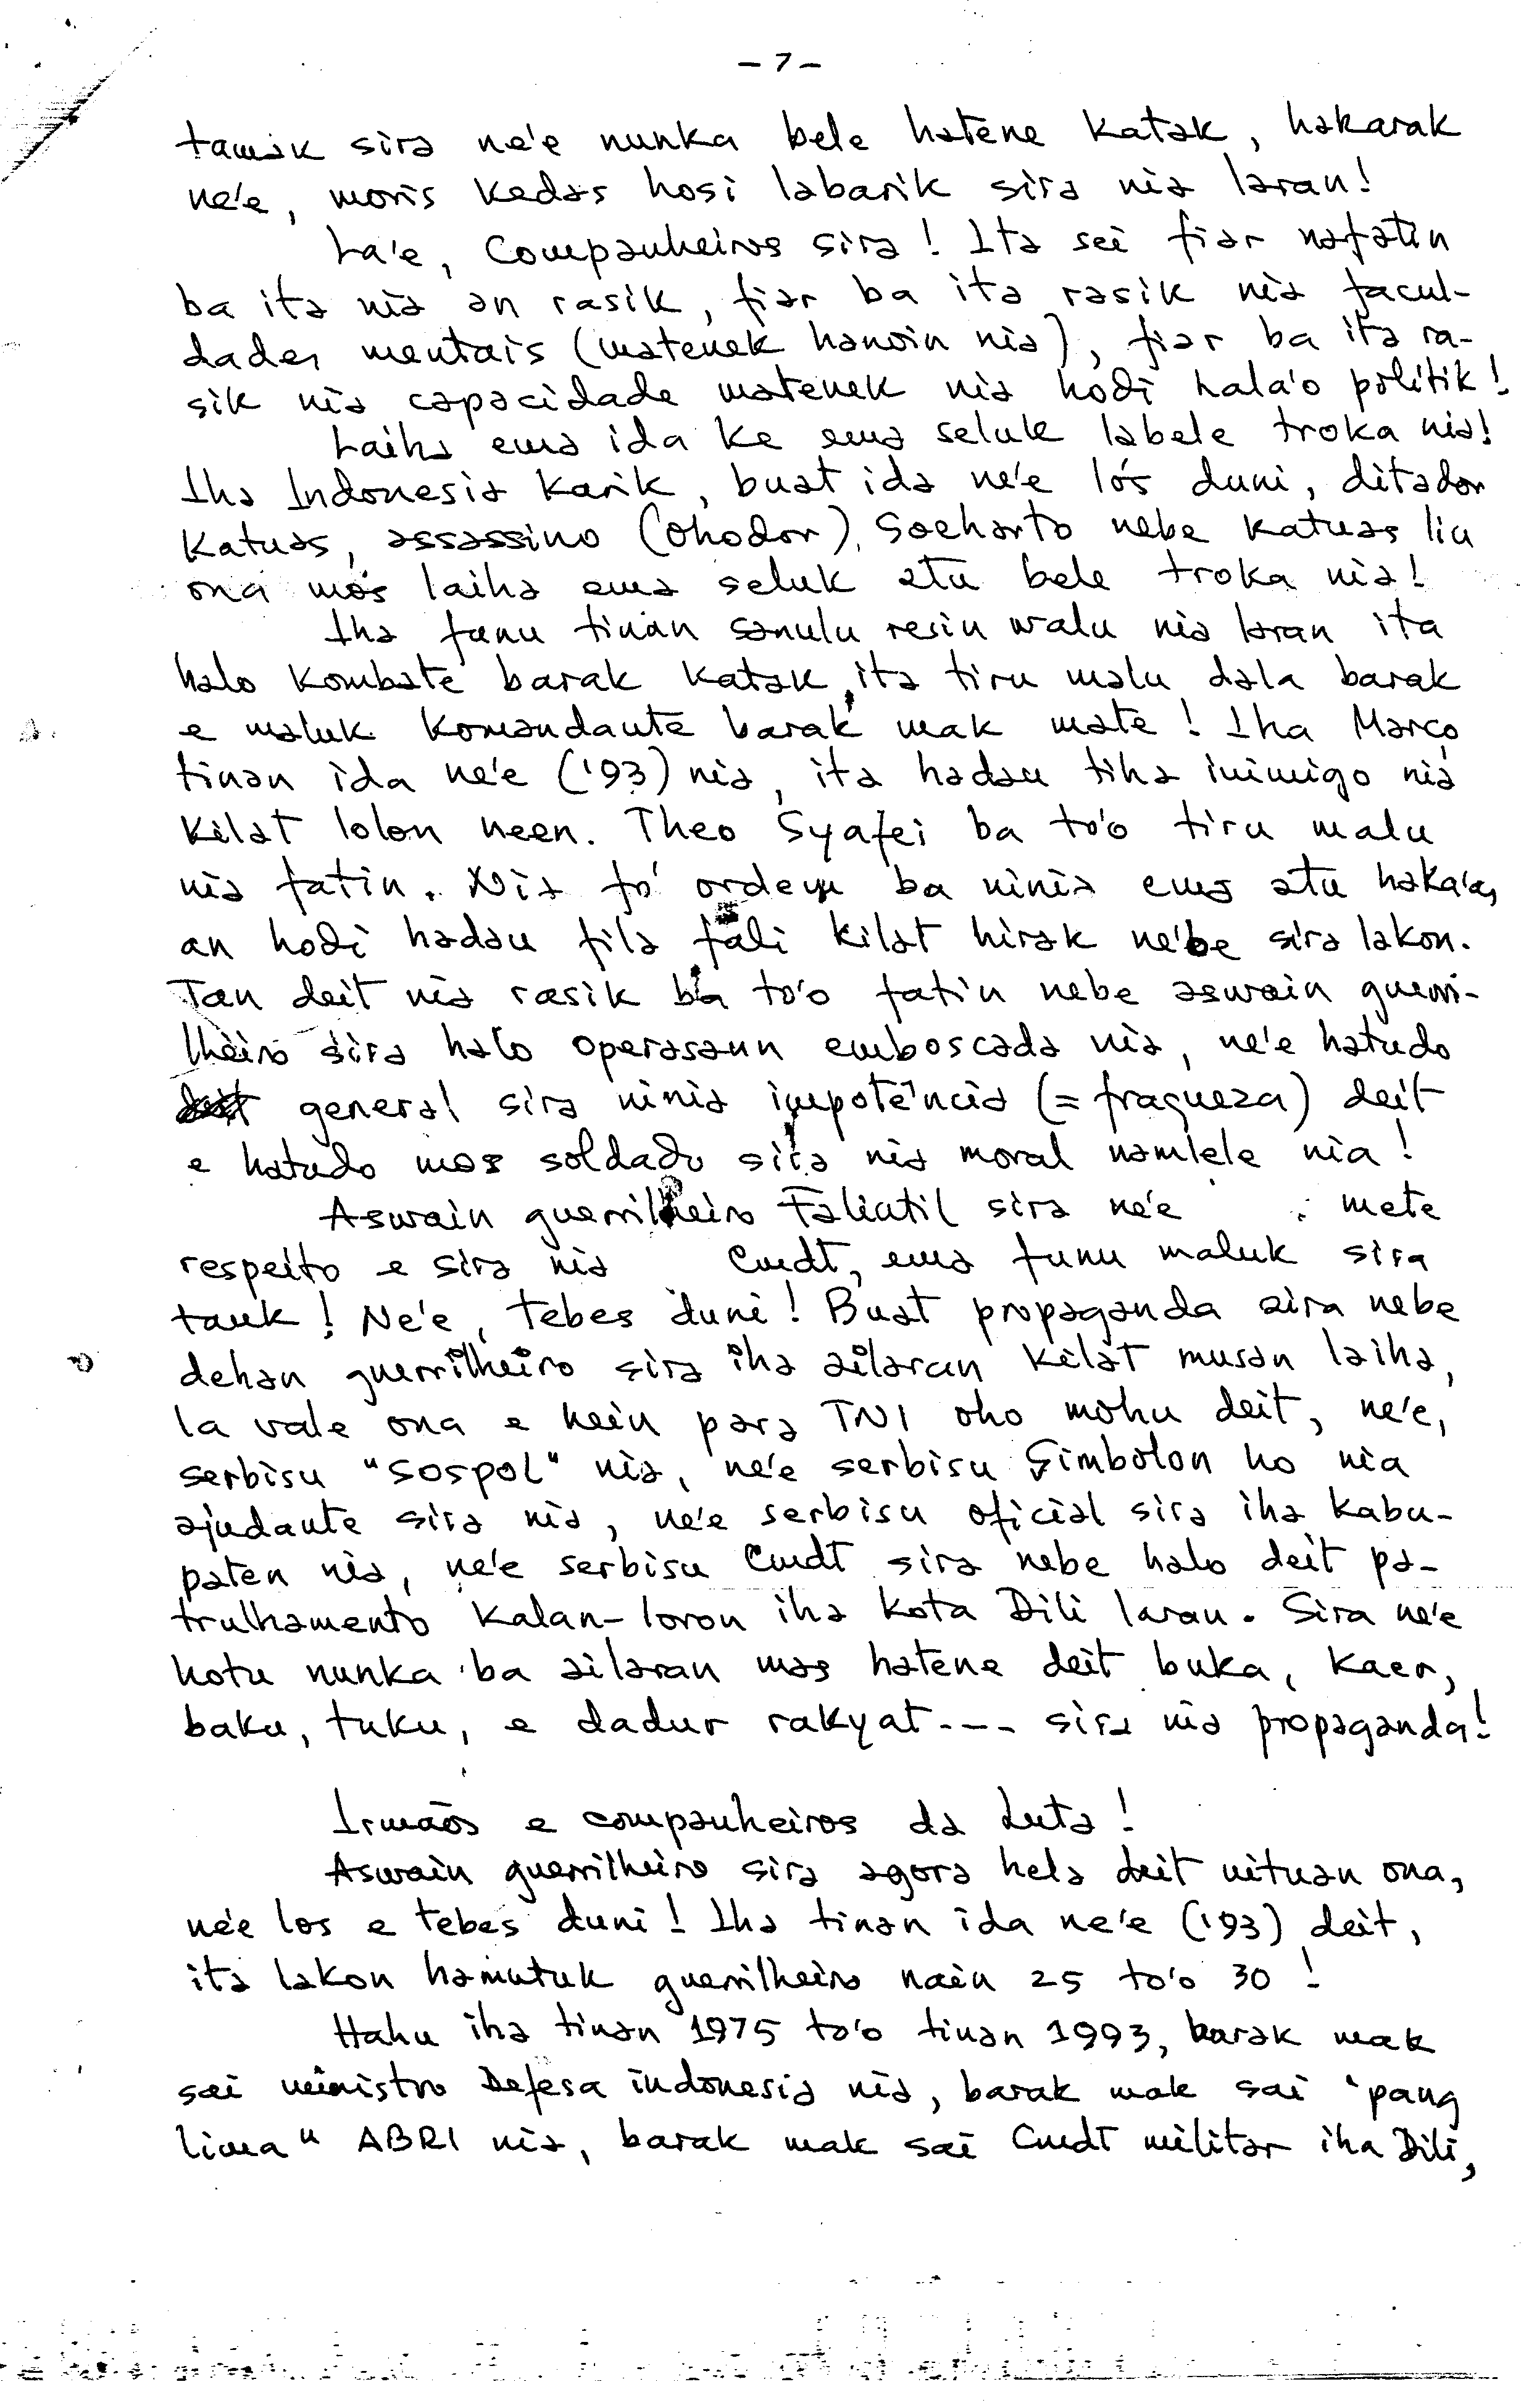 - 7 -
tamak sira ne'e nunka bele hatene katak, hakarak
ne'e, moris kedas hosi labarik sira nia laran!
La'e, Companheiros sira! Ita sei fiar nafatin
ba ita nia an rasik, fiar ba ita rasik nia facul-
dades mentais (matenek hanoin nia), fiar ba ita ra-
sik nia capacidade matenek nia hodi hala'o politik!
Laiha ema ida ke ema seluk labele troka nia!
Iha Indonesia karik, buat ida ne'e lós duni, ditador
katuas, assassino (ohodor), Soeharto nebe katuas liu
ona mós laiha ema seluk atu bele troka nia!
Iha funu tinan sanulu resin walu nia laran ita
halo kombate barak katak, ita tiru malu dala barak
e maluk komandante barak mak mate! Iha Março
tinan ida ne'e ('93) nia, ita hadau tiha inimigo nia
kilat lolon neen. Theo Syafei ba to'o tiru malu
nia fatin. Nia fó ordem ba ninia ema atu haka'as
an hodi hadau fila fali kilat hirak ne'be sira lakon.
Tan deit nia rasik ba to'o fatin nebe aswain guerri-
lheiro sira halo operasaun emboscada nia, ne'e hatudo
general sira ninia impotência (= fraqueza) deit
e hatudo mos soldadu sira nia moral namlele nia!
Aswain guerrilheiro Falintil sira ne'e mete
respeito e sira nia Cmdt, ema funu maluk sira
tauk! Ne'e, tebes duni! Buat propaganda sira nebe
dehan guerrilheiro sira iha ailaran kilat musan laiha,
la vale ona e hein para TNI oho mohu deit, ne'e,
serbisu "SOSPOL" nia, ne'e serbisu Simbolon ho nia
ajudante sira nia, ne'e serbisu oficial sira iha kabu-
paten nia, ne'e serbisu Cmdt sira nebe halo deit pa-
trulhamento kalan-loron iha kota Dili laran. Sira ne'e
hotu nunka ba ailaran mas hatene deit buka, kaer,
baku, tuku, e dadur rakyat---- sira nia propaganda!
Irmãos e companheiros da Luta!
Aswain guerrilheiro sira agora hela deit uituan ona,
ne'e los e tebes duni! Iha tinan ida ne'e ('93) deit,
ita lakon hamutuk guerrilheiro nain 25 to'o 30!
Hahu iha tinan 1975 to'o tinan 1993, barak mak
sai ministro Defesa indonesia nia, barak mak sai "pang
lima" ABRI nia, barak mak sai Cmdt militar iha Dili,